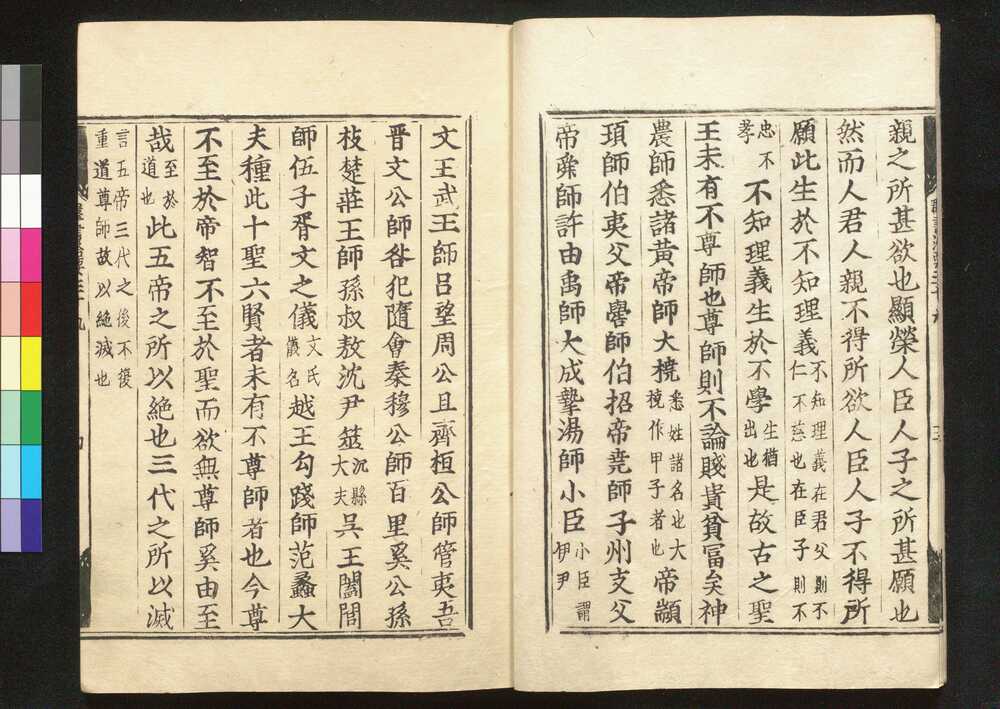 親之所甚欲也顯榮人臣人子之所甚願也
然而人君人親不得所欲人臣人子不得所
願此生於不知理義不知理義在君父則不仁不慈也在臣子則不
忠不孝不知理義生於不學生猶出也是故古之聖
王未有不尊師也尊師則不論賤貴貧冨矣神
農師悉諸黃帝師大橈悉姓諸名也大橈作甲子者也帝顓
頊師伯夷父帝嚳師伯招帝尭師子州支父
帝舜師許由禹師大成摯湯師小臣小臣謂伊尹
文王武王師吕望周公旦齊桓公師管夷吾
晉文公師咎犯隨會秦穆公師百里奚公孫
枝楚莊王師孫叔敖沈尹筮沈縣大夫吳王闔閭
師伍子胥文之儀文氏儀名越王勾踐師范蠡大
夫種此十聖六賢者未有不尊師者也今尊
不至於帝智不至於聖而欲無尊師奚由至
哉至於道也此五帝之所以絶也三代之所以滅
言五帝三代之後不復重道尊師故以絶滅也